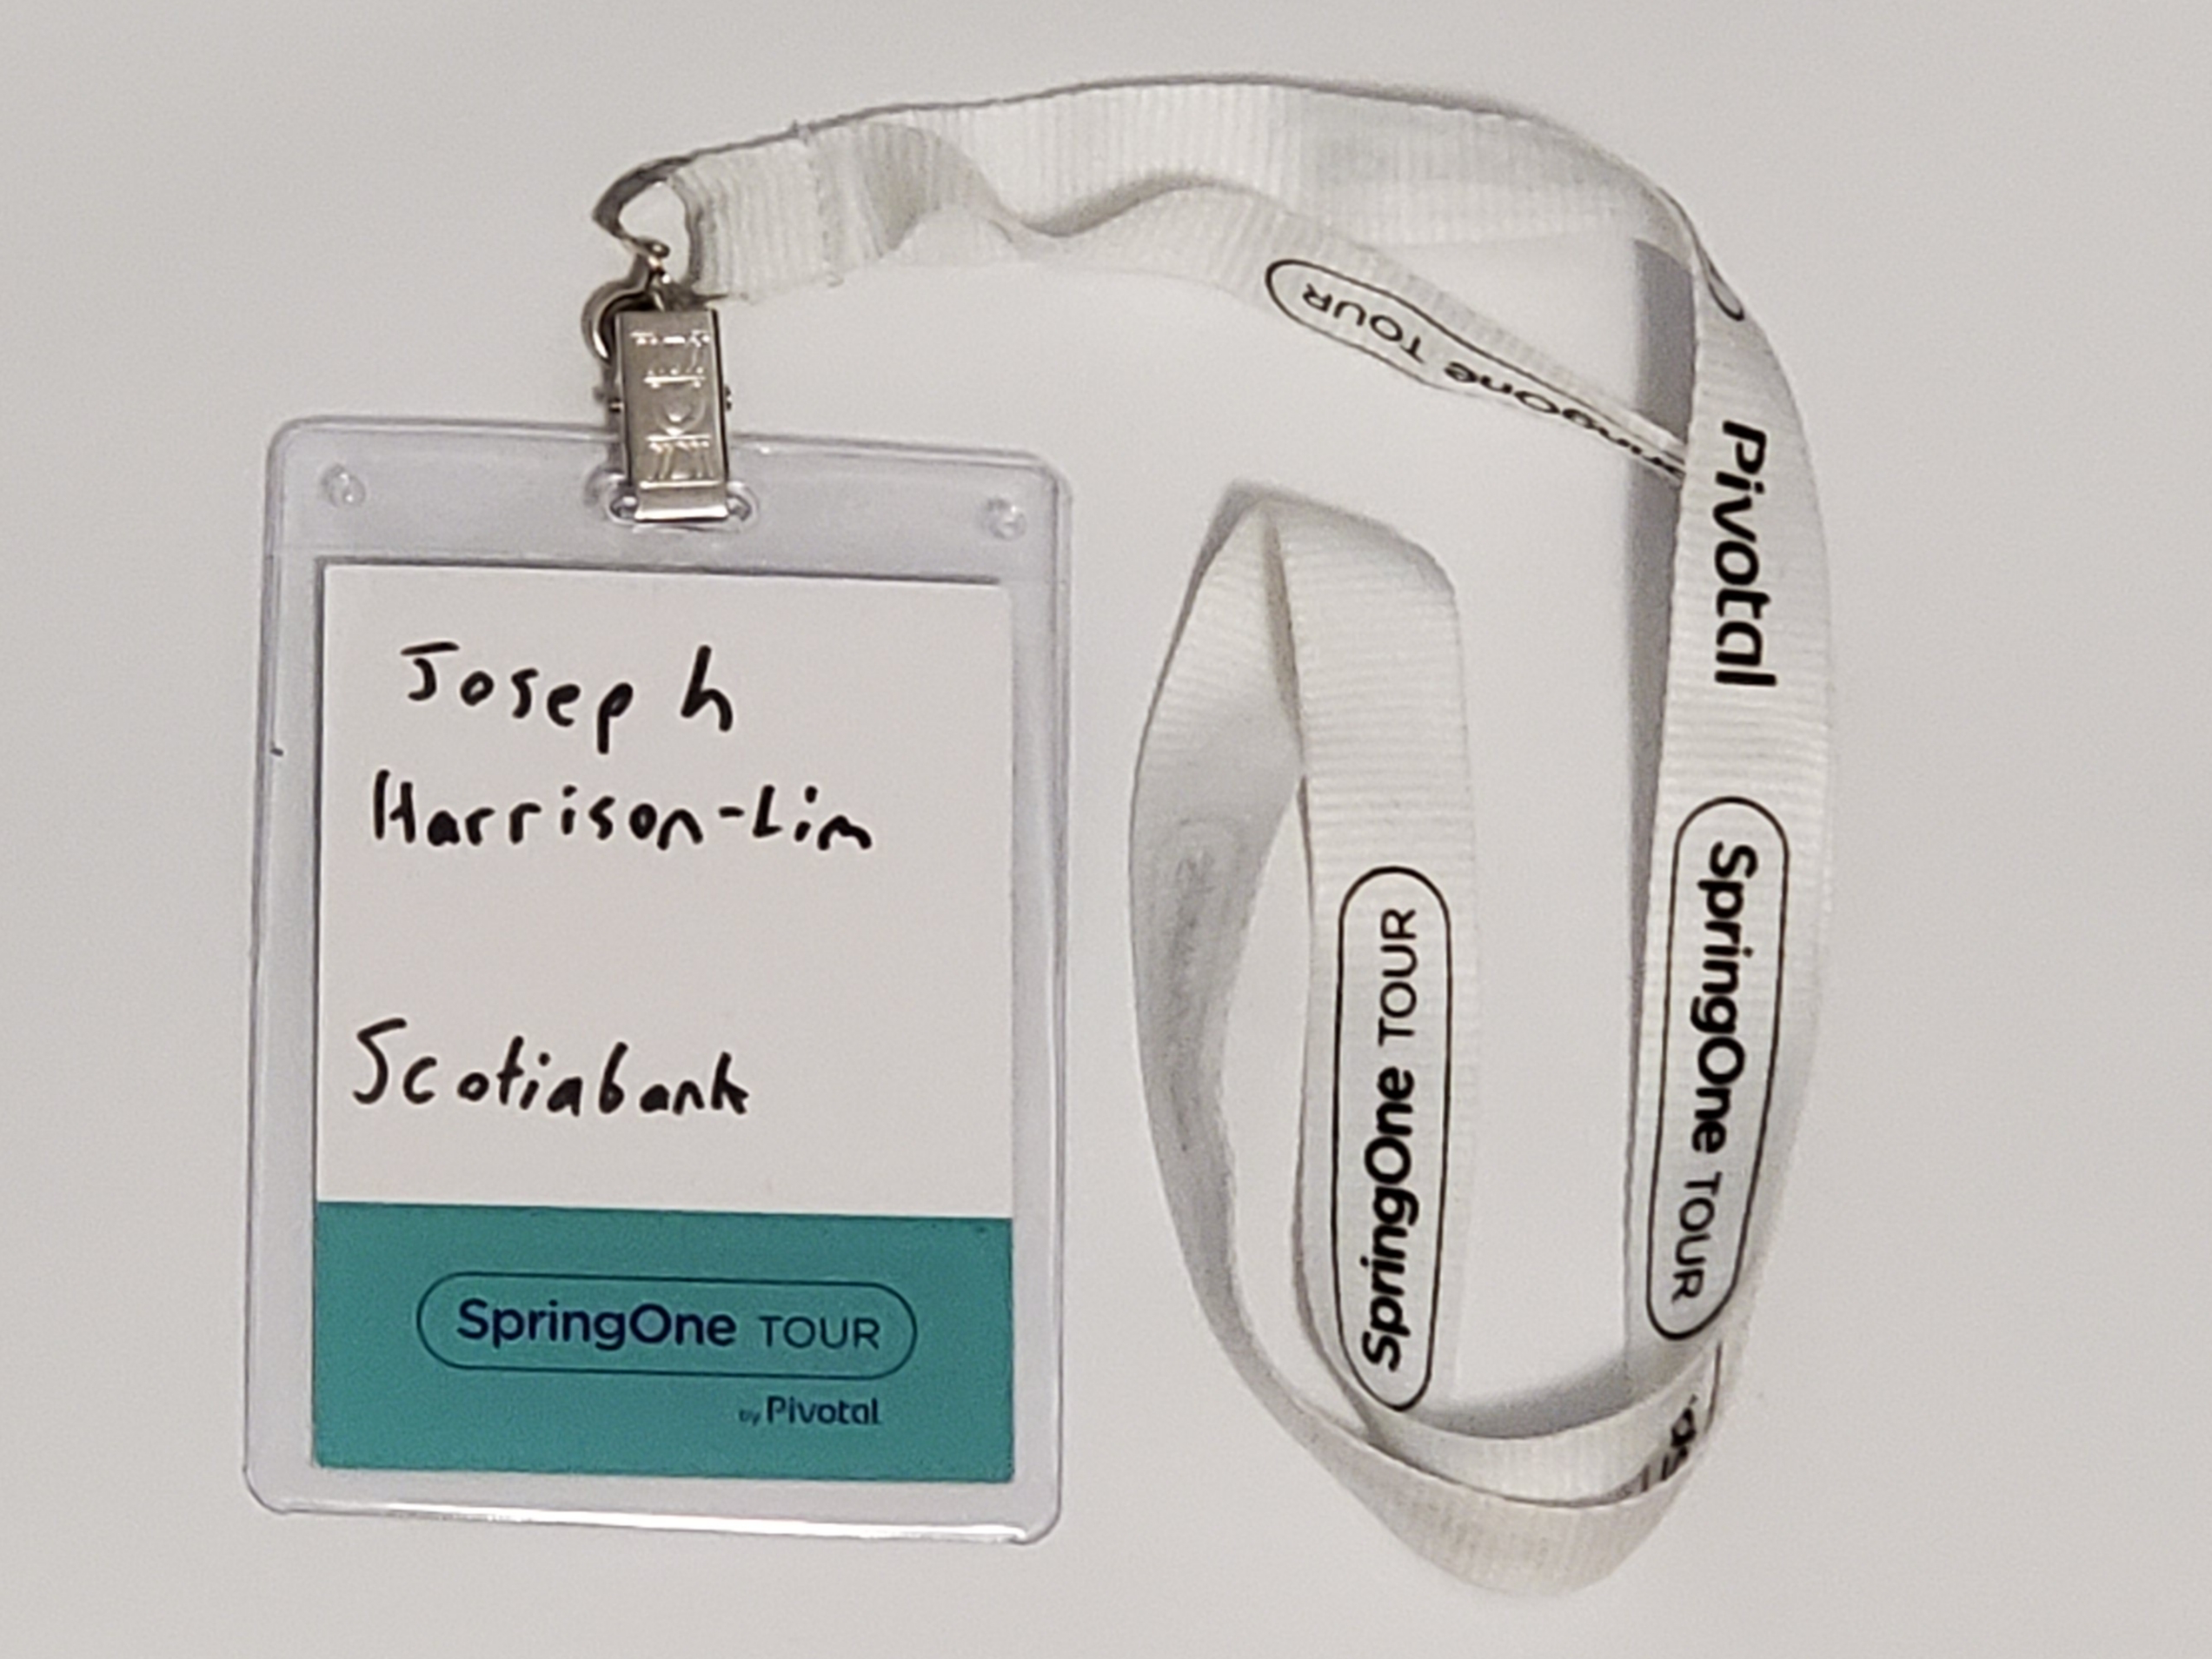 Joseph
Harrison-Lim
Scotiabank
SpringOne TOUR
by Pivotal
SpringOne TOUR
Pivotal
SpringOne TOUR
SpringOne TOUR